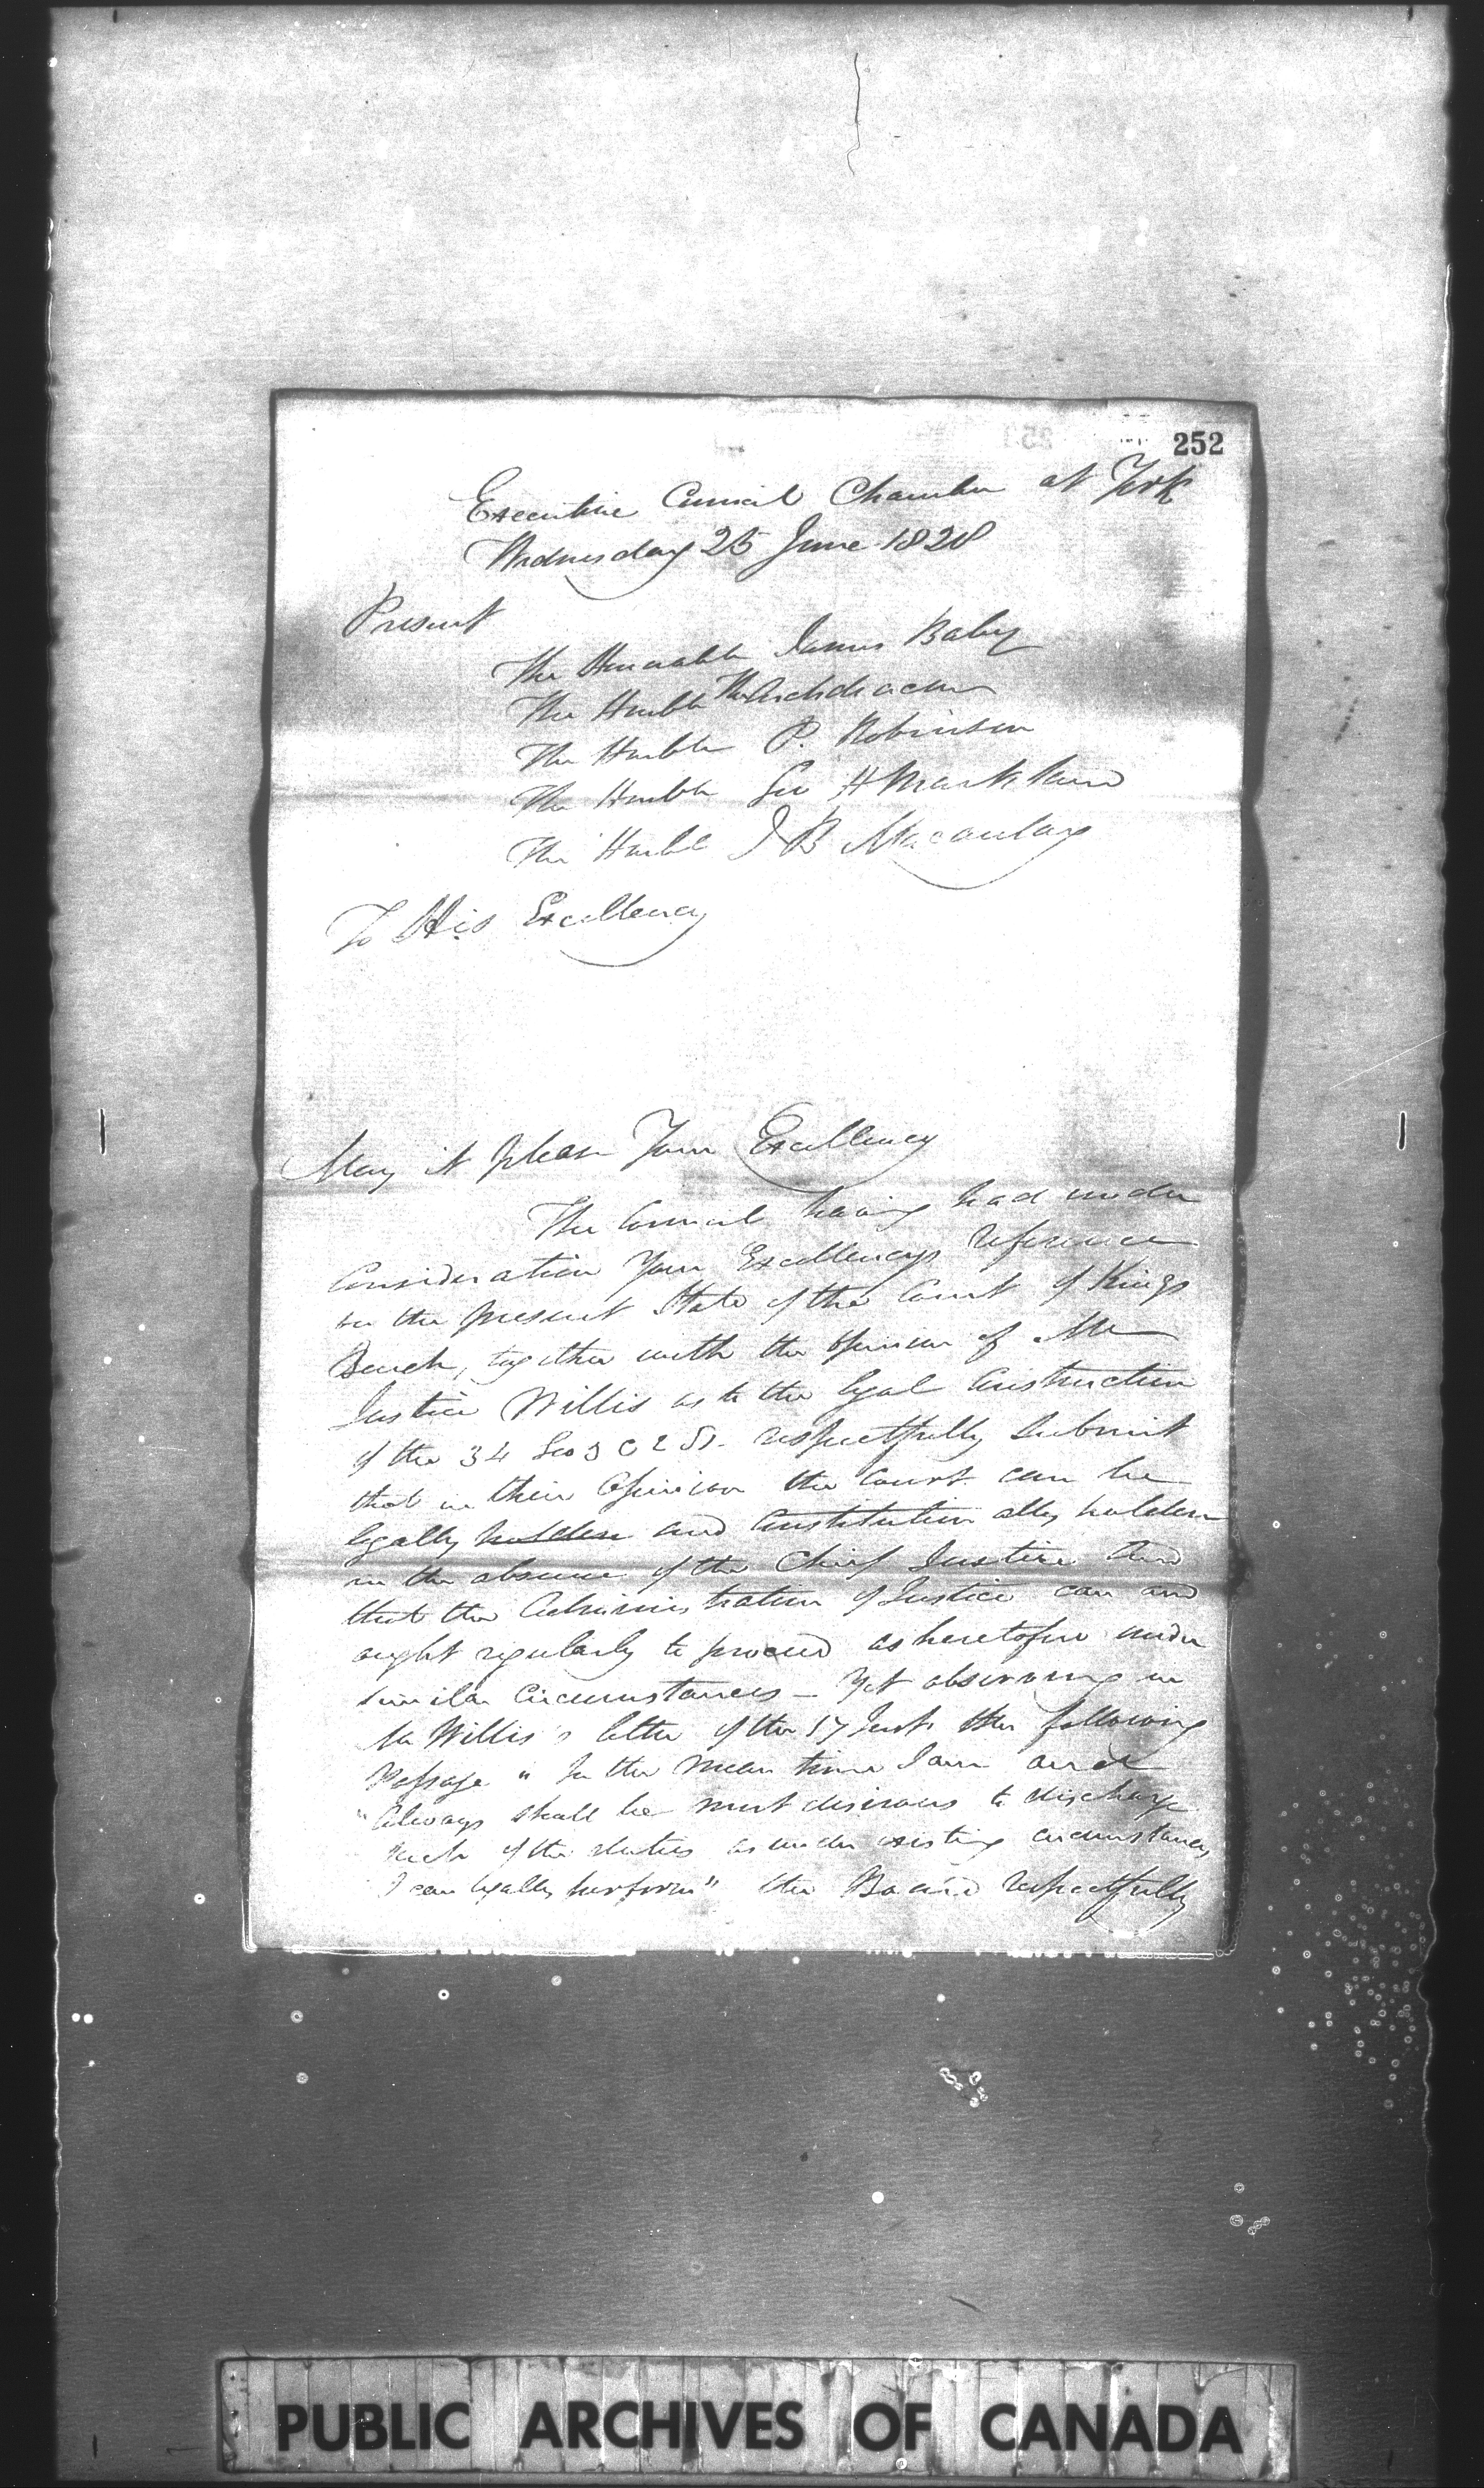 252
Executive Council Chamber at York
Wednesday 25 June 1828
Present
The Honorable James Baby
The Honble The Archdeacon
The Honble P. Robinson
The Honble Geo H Markland
The Honble J B Macaulay
To His Excellency
May it please Your Excellency
The Council having had under
Consideration Your Excellencys reference
on the present State of the Court of Kings
Bench, together with the opinion of Mr
Justice Willis as to the legal Construction
of the 34 Geo 3 C 2 respectfully submit
that in their Opinion the Court can be
legally holden and Constitutionally holden
in the absence of the Chief Justice And
that the Administration of Justice can and
ought regularly to proceed as heretofore under
similar Circumstances – Yet observing in
Mr Willis's letter of the 17 Inst the following
Passage " In the mean time I am and
" Always shall be most desirous to discharge
such of the duties as under existing circumstances
I can legally perform" the Board respectfully
PUBLIC ARCHIVES OF CANADA